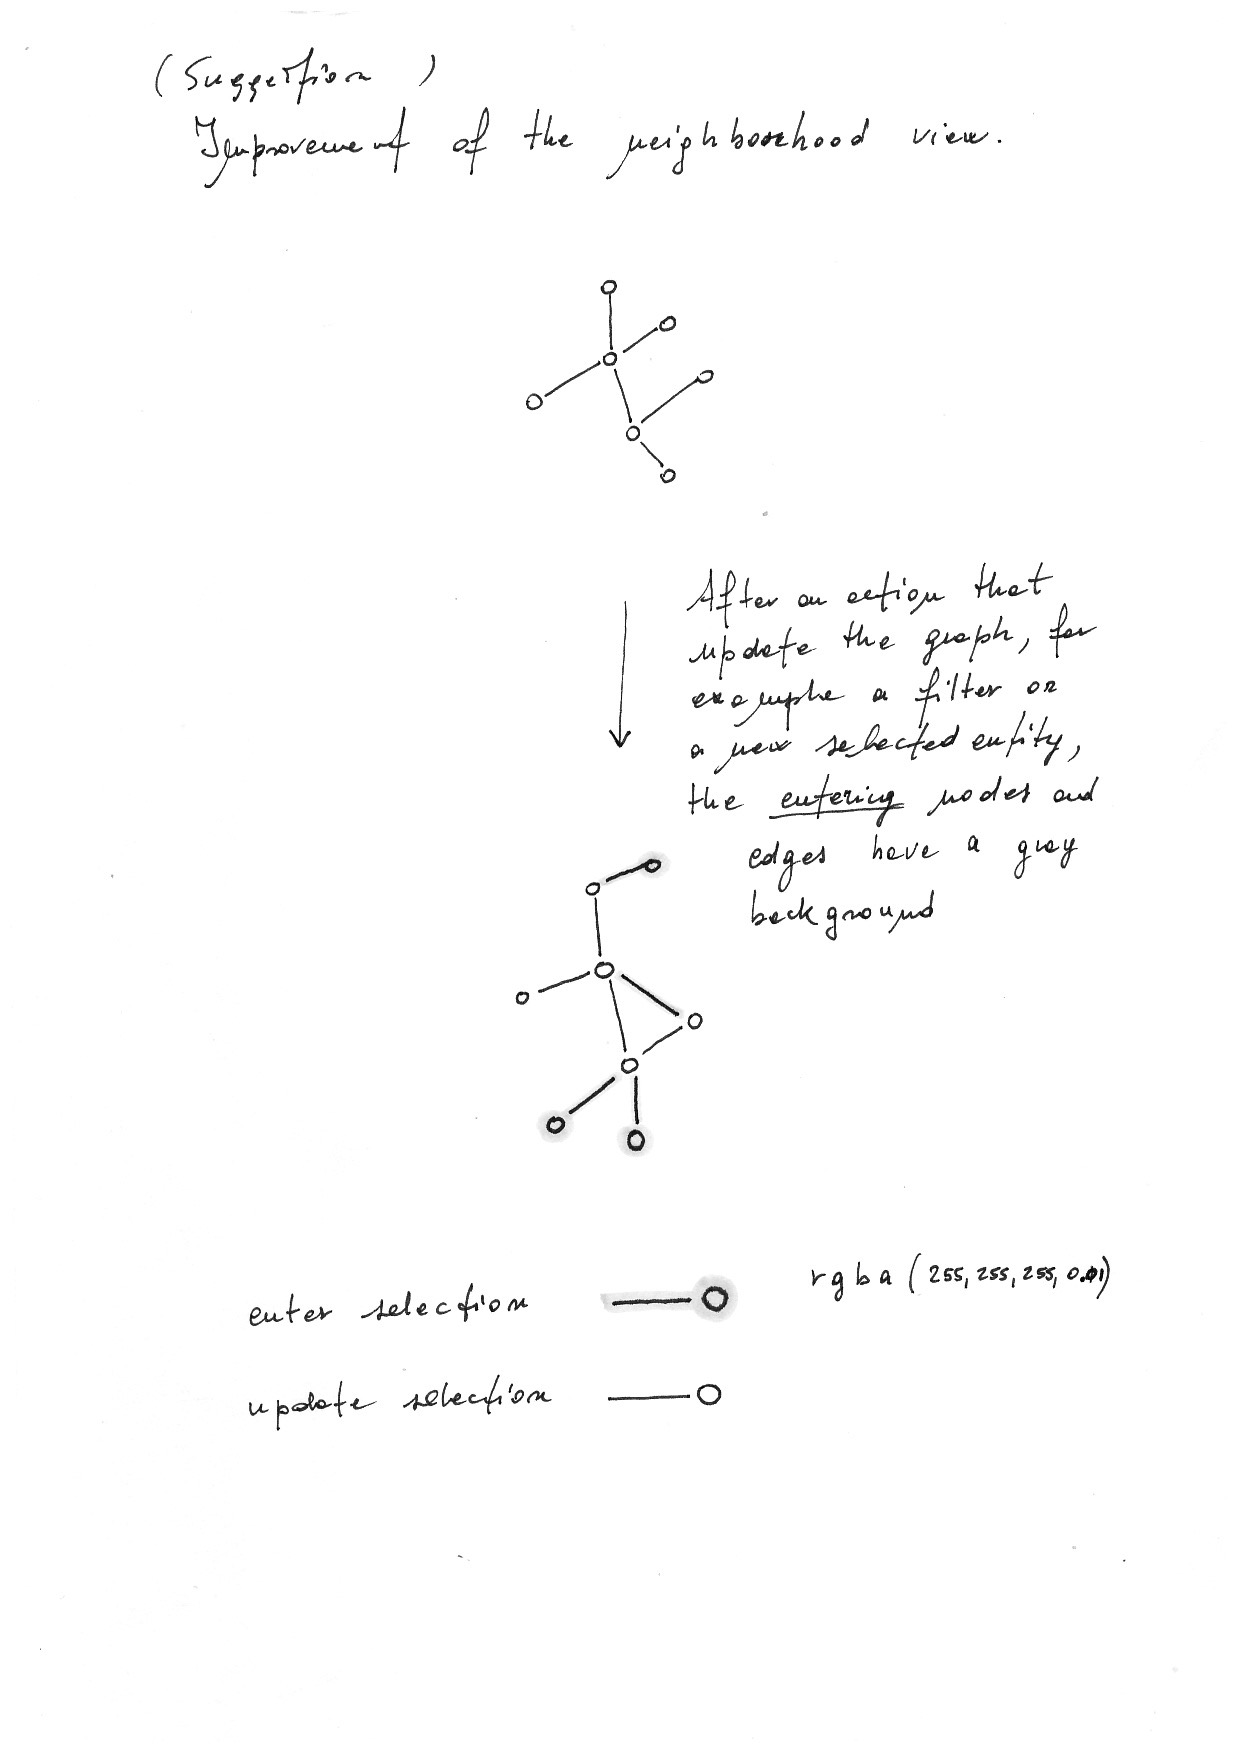 (Suggestion )
Improvement of the neighborhood view.
After an action that
update the graph, for
example a filter or
a new selected entity,
the entering nodes and
edges have a gray
background
enter selection
rgba (255, 255, 255, 0.01)
update selection